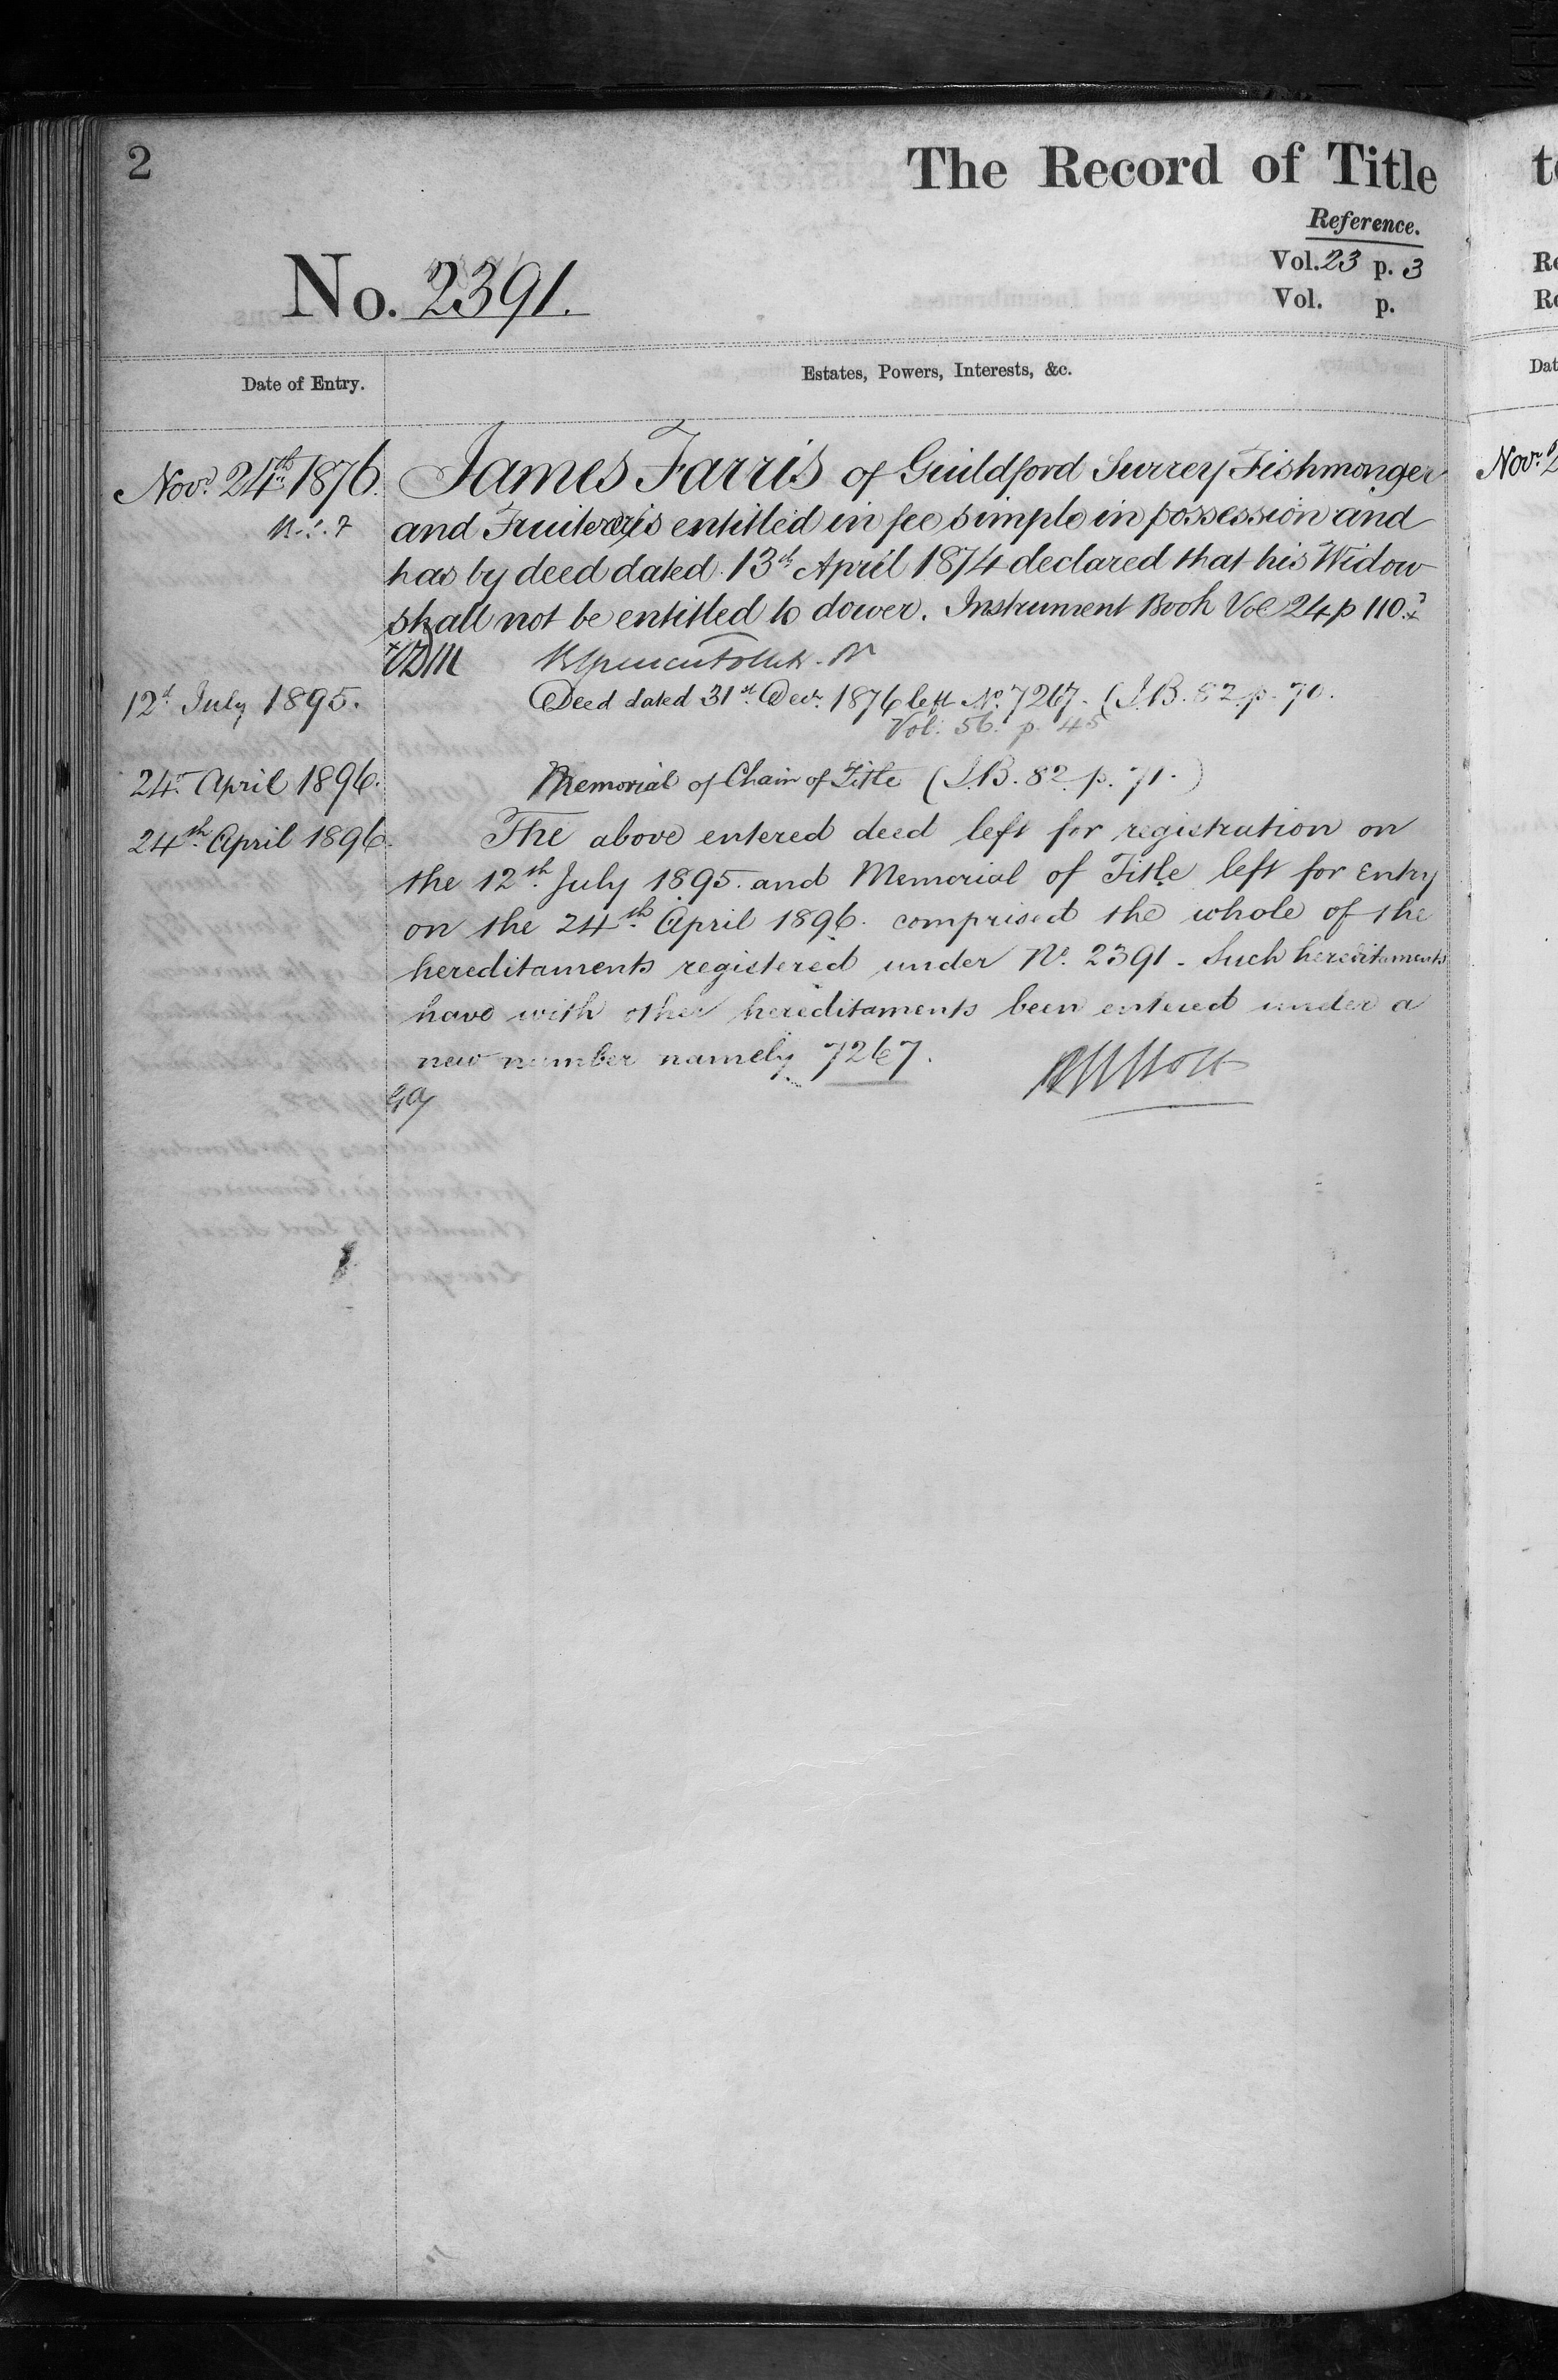 2
The Record of Title
Reference.
Vol. 23 p. 3
Vol. p.
No. 2391.
Date of Entry.
Estates, Powers, Interests, &c.
Novr. 24th 1876. James Farris of Guildford Surrey Fishmonger
and Fruiterer is entitled in fee simple in possession and
has by deed dated 13th April 1874 declared that his Widow
shall not be entitled to dower. Instrument Book Vol 24 p 110.
12th July 1895. Deed dated 31st Decr. 1876 left No. 7267. (I.B. 82. p. 70.
Vol: 56. p. 45
24th April 1896. Memorial of Chain of Title (I.B. 82. p. 71. )
24th April 1896. The above entered deed left for registration on
the 12th July 1895. and Memorial of Title left for Entry
on the 24th April 1896. comprised the whole of the
hereditaments registered under No. 2391 - Such hereditaments
have with other hereditaments been entered under a
new number namely 7267.
t
Re
Re
Dat
Novr. 2